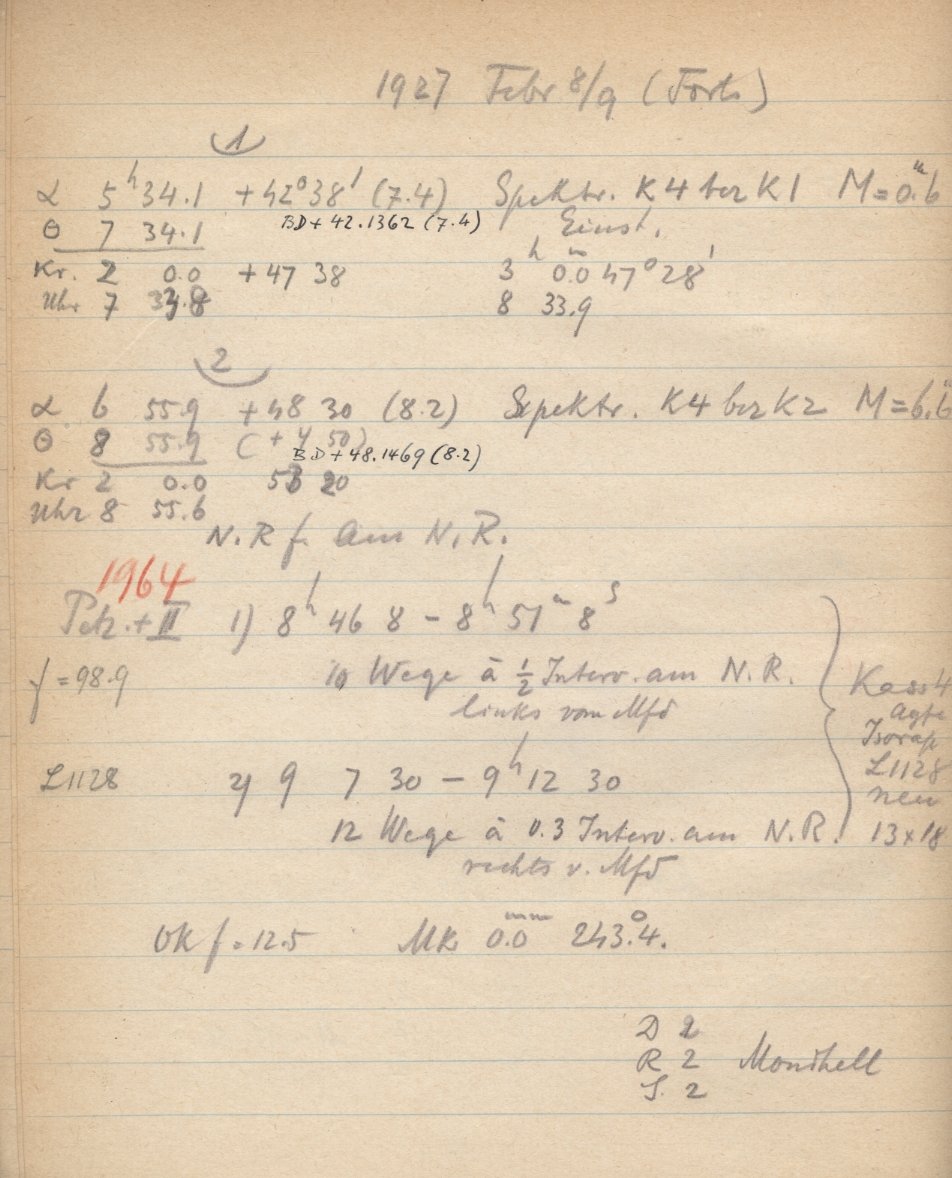 1927 Febr 8/9 (Forts)
1
α 5ʰ 34.1 +42° 38' (7.4) Spektr. K4 bez K1 M=0.6ᵐ
BD+42.1362 (7.4)
θ 7 34.1 Einst.
Kr. 2 0.0 +47 38 3ʰ 0.0ᵐ 47° 28'
Uhr 7 33.8 8 33.9
2
α 6 55.9 +48 30 (8.2) Spektr. K4 bez K2 M=6.6ᵐ
θ 8 55.9 (+4 50)
BD+48.1469 (8.2)
Kr 2 0.0 53 20
Uhr 8 55.6
N.R f. am N.R.
1964
Petz.+II 1) 8ʰ 46 8 – 8ʰ 51ᵐ 8ˢ
f=98.9 10 Wege à ½ Interv. am N.R.
links vom Mfd
Kass 4
Agfa
Isorap
L1128
neu
13×18
L1128 2) 9 7 30 – 9ʰ 12 30
12 Wege à 0.3 Interv. am N.R.
rechts v. Mfd
OK f=12.5 MK 0.0ᵐᵐ 243°.4.
D 2
R 2 Mondhell
S. 2